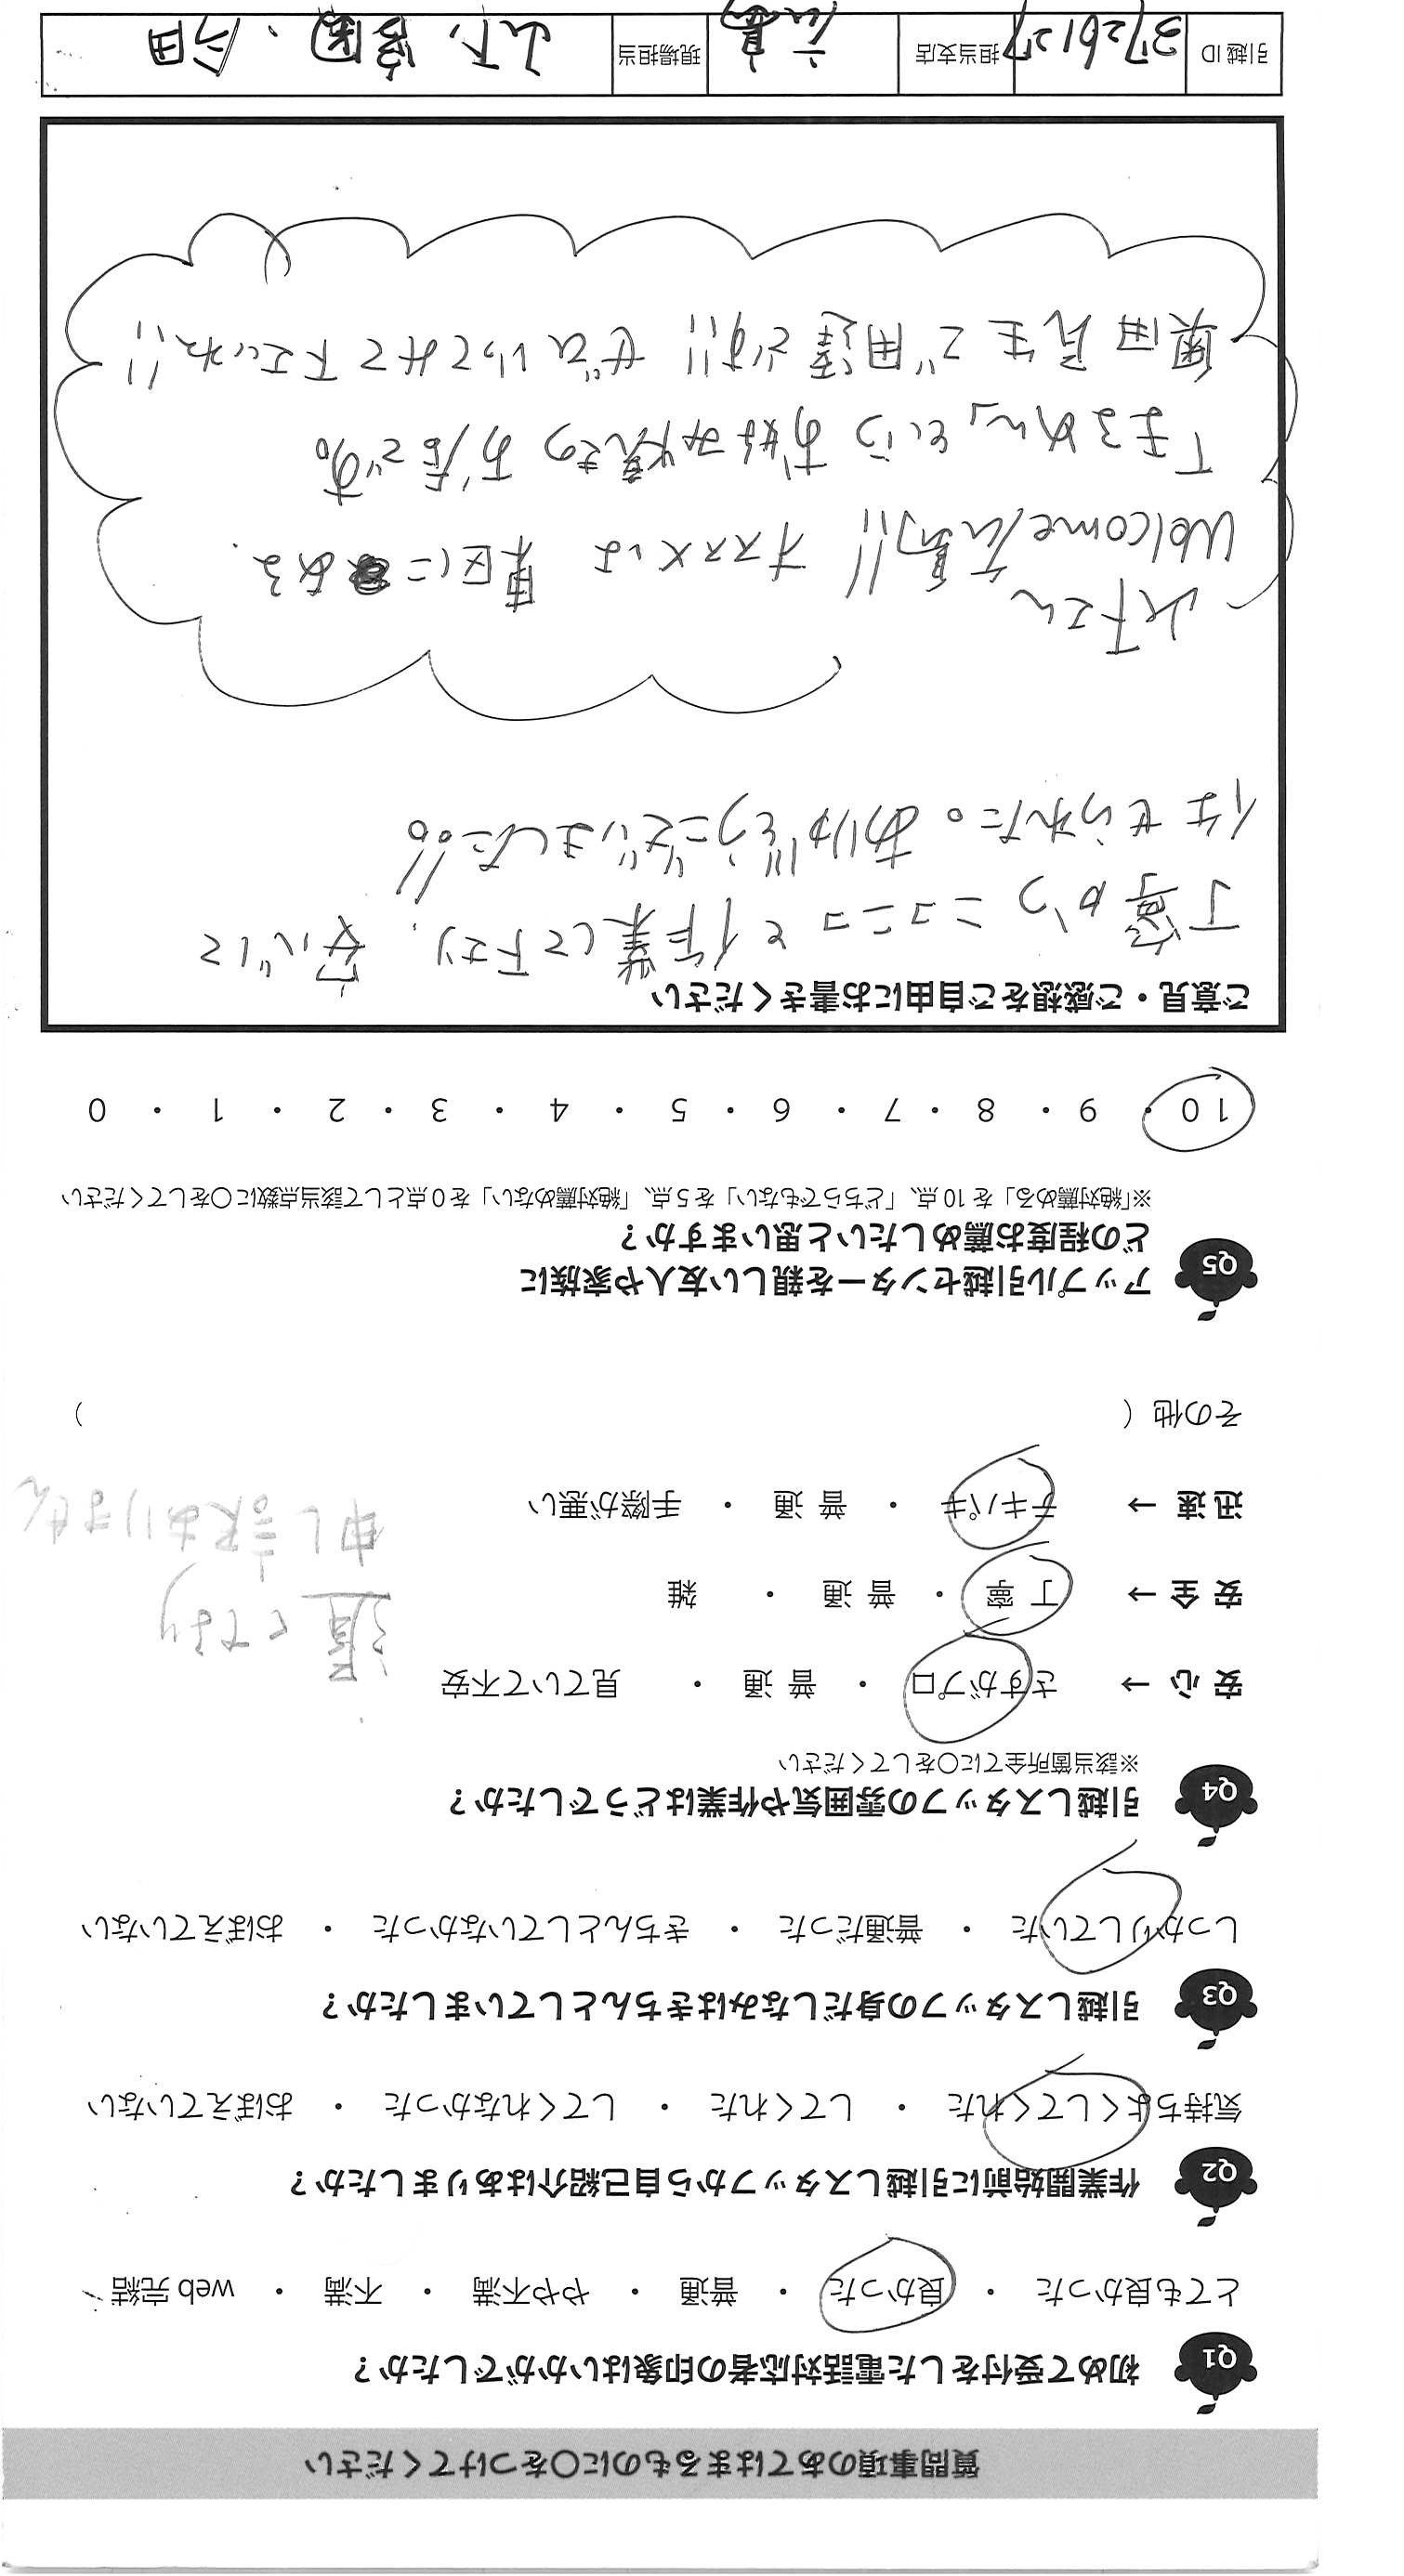 質問事項のあてはまるものに〇をつけてください
Q1 初めて受付をした電話対応者の印象はいかがでしたか？
とても良かった ・ 良かった ・ 普通 ・ やや不満 ・ 不満 ・ web 完結
Q2 作業開始前に引越しスタッフから自己紹介はありましたか？
気持ちよくしてくれた ・ してくれた ・ してくれなかった ・ おぼえていない
Q3 引越しスタッフの身だしなみはきちんとしていましたか？
しっかりしていた ・ 普通だった ・ きちんとしていなかった ・ おぼえていない
Q4 引越しスタッフの雰囲気や作業はどうでしたか？
※該当箇所全てに〇をしてください
安 心 → さすがプロ ・ 普 通 ・ 見ていて不安
安 全 → 丁 寧 ・ 普 通 ・ 雑
迅 速 → テキパキ ・ 普 通 ・ 手際が悪い
遅くなり
申し訳ありません
その他（ ）
Q5 アップル引越センターを親しい友人や家族に
どの程度お薦めしたいと思いますか？
※「絶対薦める」を 10 点、「どちらでもない」を 5 点、「絶対薦めない」を 0 点として該当点数に〇をしてください
10 ・ 9 ・ 8 ・ 7 ・ 6 ・ 5 ・ 4 ・ 3 ・ 2 ・ 1 ・ 0
ご意見・ご感想をご自由にお書きください
丁寧かつニコニコと作業して下さり、安心して
任せられた。ありがとうございました!!
山下さん
Welcome広島!! オススメは 東区にある
「まるめん」という お好み焼きの お店です。
奥田民生ご用達です!! ぜひいってみて下さいね!!
引越 ID 3726127 担当支店 広島 現場担当 山下、富岡、今田